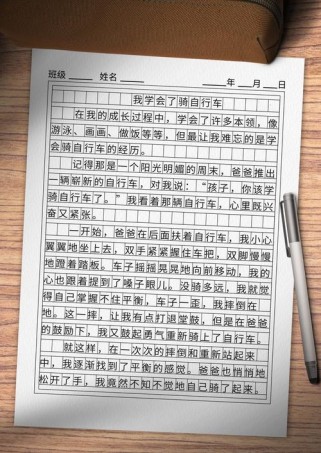 班级 姓名 年 月 日
我学会了骑自行车
在我的成长过程中，学会了许多本领，像
游泳、画画、做饭等等，但最让我难忘的是学
会骑自行车的经历。
记得那是一个阳光明媚的周末，爸爸推出
一辆崭新的自行车，对我说：“孩子，你该学
骑自行车了。”我看着那辆自行车，心里既兴
奋又紧张。
一开始，爸爸在后面扶着自行车，我小心
翼翼地坐上去，双手紧紧握住车把，双脚慢慢
地蹬着踏板。车子摇摇晃晃地向前移动，我的
心也跟着提到了嗓子眼儿。没骑多远，我就觉
得自己掌握不住平衡，车子一歪，我摔倒在
地。这一摔，让我有点打退堂鼓，但是在爸爸
的鼓励下，我又鼓起勇气重新骑上了自行车。
就这样，在一次次的摔倒和重新站起来
中，我逐渐找到了平衡的感觉。爸爸也悄悄地
松开了手，我竟然不知不觉地自己骑了起来。